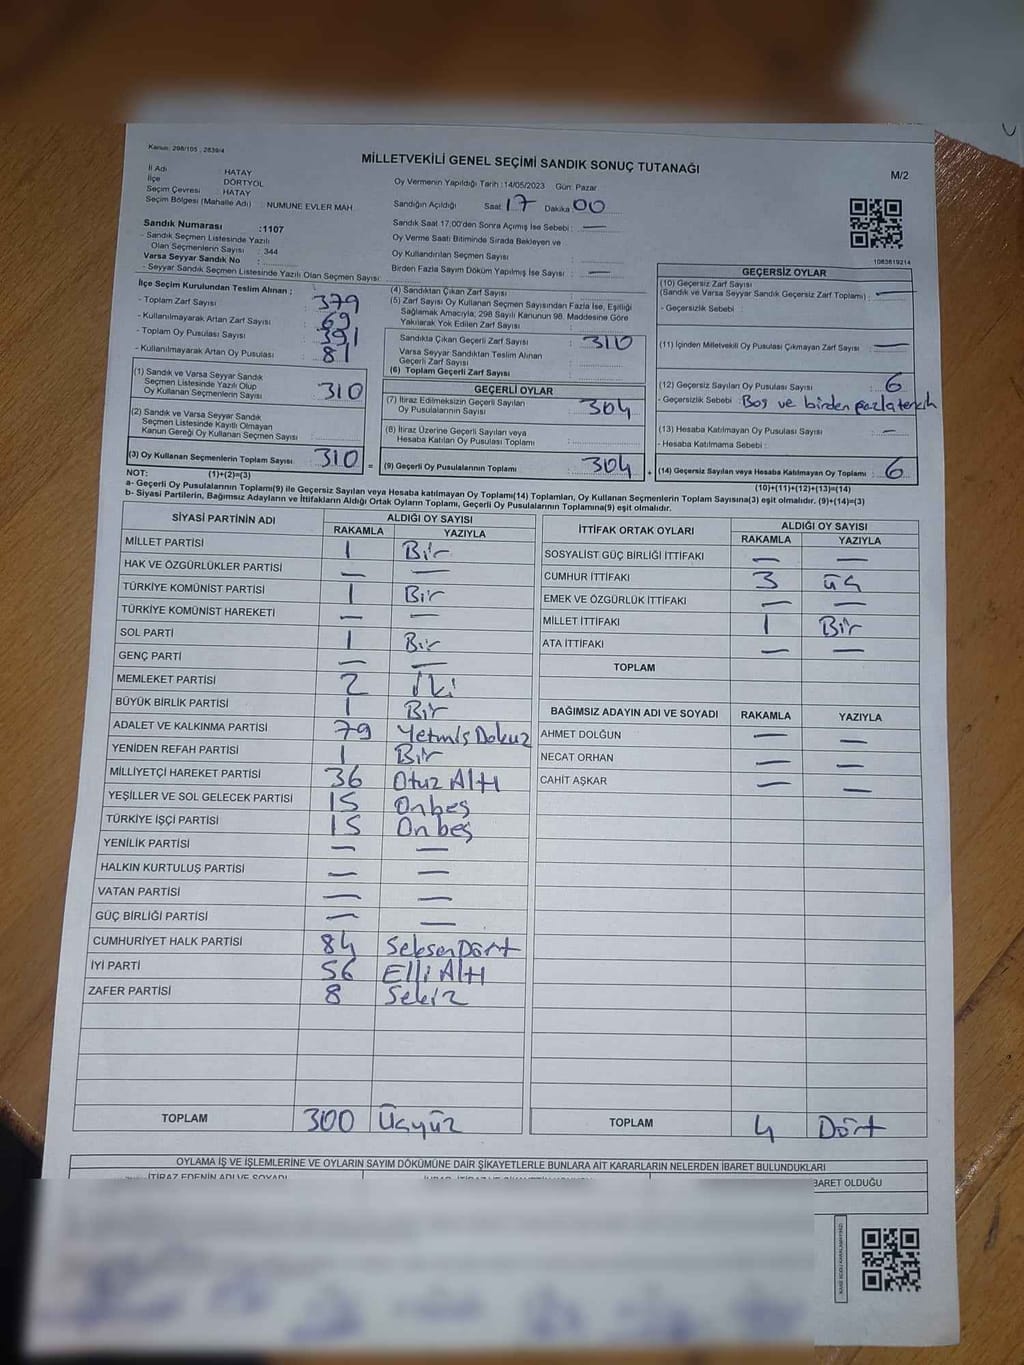 Kanun: 298/105 ; 2839/4
MİLLETVEKİLİ GENEL SEÇİMİ SANDIK SONUÇ TUTANAĞI
M/2
İl Adı HATAY
İlçe DÖRTYOL
Seçim Çevresi HATAY
Seçim Bölgesi (Mahalle Adı) : NUMUNE EVLER MAH.
Sandık Numarası :1107
- Sandık Seçmen Listesinde Yazılı
Olan Seçmenlerin Sayısı : 344
Varsa Seyyar Sandık No :
- Seyyar Sandık Seçmen Listesinde Yazılı Olan Seçmen Sayısı:
Oy Vermenin Yapıldığı Tarih :14/05/2023 Gün: Pazar
Sandığın Açıldığı Saat: 17 Dakika 00
Sandık Saat 17:00'den Sonra Açılmış İse Sebebi : —
Oy Verme Saati Bitiminde Sırada Bekleyen ve
Oy Kullandırılan Seçmen Sayısı :
Birden Fazla Sayım Döküm Yapılmış İse Sayısı : —
1083819214
İlçe Seçim Kurulundan Teslim Alınan ;
- Toplam Zarf Sayısı : 379
- Kullanılmayarak Artan Zarf Sayısı : 69
- Toplam Oy Pusulası Sayısı : 391
- Kullanılmayarak Artan Oy Pusulası : 81
(1) Sandık ve Varsa Seyyar Sandık
Seçmen Listesinde Yazılı Olup
Oy Kullanan Seçmenlerin Sayısı : 310
(2) Sandık ve Varsa Seyyar Sandık
Seçmen Listesinde Kayıtlı Olmayan
Kanun Gereği Oy Kullanan Seçmen Sayısı :
(3) Oy Kullanan Seçmenlerin Toplam Sayısı : 310 =
(4) Sandıktan Çıkan Zarf Sayısı :
(5) Zarf Sayısı Oy Kullanan Seçmen Sayısından Fazla İse, Eşitliği
Sağlamak Amacıyla; 298 Sayılı Kanunun 98. Maddesine Göre
Yakılarak Yok Edilen Zarf Sayısı :
Sandıkta Çıkan Geçerli Zarf Sayısı : 310
Varsa Seyyar Sandıktan Teslim Alınan
Geçerli Zarf Sayısı :
(6) Toplam Geçerli Zarf Sayısı :
GEÇERLİ OYLAR
(7) İtiraz Edilmeksizin Geçerli Sayılan
Oy Pusulalarının Sayısı : 304
(8) İtiraz Üzerine Geçerli Sayılan veya
Hesaba Katılan Oy Pusulası Toplamı :
(9) Geçerli Oy Pusulalarının Toplamı : 304 +
GEÇERSİZ OYLAR
(10) Geçersiz Zarf Sayısı
(Sandık ve Varsa Seyyar Sandık Geçersiz Zarf Toplamı) : —
- Geçersizlik Sebebi :
(11) İçinden Milletvekili Oy Pusulası Çıkmayan Zarf Sayısı : —
(12) Geçersiz Sayılan Oy Pusulası Sayısı : 6
- Geçersizlik Sebebi : Boş ve birden fazla tercih
(13) Hesaba Katılmayan Oy Pusulası Sayısı : —
- Hesaba Katılmama Sebebi :
(14) Geçersiz Sayılan veya Hesaba Katılmayan Oy Toplamı : 6
NOT: (1)+(2)=(3)
(10)+(11)+(12)+(13)=(14)
a- Geçerli Oy Pusulalarının Toplamı(9) ile Geçersiz Sayılan veya Hesaba katılmayan Oy Toplamı(14) Toplamları, Oy Kullanan Seçmenlerin Toplam Sayısına(3) eşit olmalıdır. (9)+(14)=(3)
b- Siyasi Partilerin, Bağımsız Adayların ve İttifakların Aldığı Ortak Oyların Toplamı, Geçerli Oy Pusulalarının Toplamına(9) eşit olmalıdır.
SİYASİ PARTİNİN ADI ALDIĞI OY SAYISI
RAKAMLA YAZIYLA
MİLLET PARTİSİ 1 Bir
HAK VE ÖZGÜRLÜKLER PARTİSİ — —
TÜRKİYE KOMÜNİST PARTİSİ 1 Bir
TÜRKİYE KOMÜNİST HAREKETİ — —
SOL PARTİ 1 Bir
GENÇ PARTİ — —
MEMLEKET PARTİSİ 2 İki
BÜYÜK BİRLİK PARTİSİ 1 Bir
ADALET VE KALKINMA PARTİSİ 79 Yetmiş Dokuz
YENİDEN REFAH PARTİSİ 1 Bir
MİLLİYETÇİ HAREKET PARTİSİ 36 Otuz Altı
YEŞİLLER VE SOL GELECEK PARTİSİ 15 Onbeş
TÜRKİYE İŞÇİ PARTİSİ 15 Onbeş
YENİLİK PARTİSİ — —
HALKIN KURTULUŞ PARTİSİ — —
VATAN PARTİSİ — —
GÜÇ BİRLİĞİ PARTİSİ — —
CUMHURİYET HALK PARTİSİ 84 Seksen Dört
İYİ PARTİ 56 Elli Altı
ZAFER PARTİSİ 8 Sekiz
TOPLAM 300 Üçyüz
İTTİFAK ORTAK OYLARI ALDIĞI OY SAYISI
RAKAMLA YAZIYLA
SOSYALİST GÜÇ BİRLİĞİ İTTİFAKI — —
CUMHUR İTTİFAKI 3 üç
EMEK VE ÖZGÜRLÜK İTTİFAKI — —
MİLLET İTTİFAKI 1 Bir
ATA İTTİFAKI — —
TOPLAM
BAĞIMSIZ ADAYIN ADI VE SOYADI RAKAMLA YAZIYLA
AHMET DOLĞUN — —
NECAT ORHAN — —
CAHİT AŞKAR — —
TOPLAM 4 Dört
OYLAMA İŞ VE İŞLEMLERİNE VE OYLARIN SAYIM DÖKÜMÜNE DAİR ŞİKAYETLERLE BUNLARA AİT KARARLARIN NELERDEN İBARET BULUNDUKLARI
İTİRAZ EDENİN ADI VE SOYADI
BARET OLDUĞU